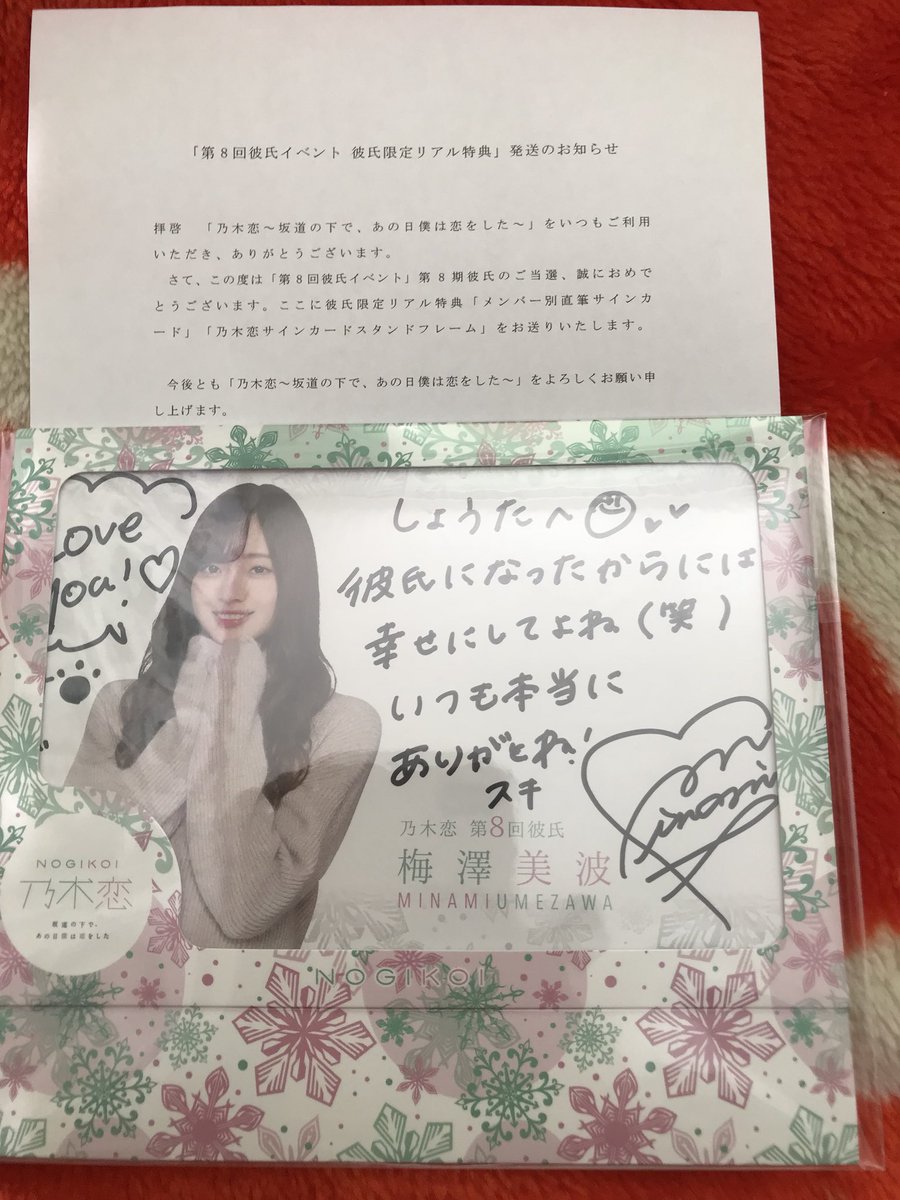 「第8回彼氏イベント 彼氏限定リアル特典」発送のお知らせ
拝啓 「乃木恋～坂道の下で、あの日僕は恋をした～」をいつもご利用
いただき、ありがとうございます。
さて、この度は「第8回彼氏イベント」第8期彼氏のご当選、誠におめで
とうございます。ここに彼氏限定リアル特典「メンバー別直筆サインカ
ード」「乃木恋サインカードスタンドフレーム」をお送りいたします。
今後とも「乃木恋～坂道の下で、あの日僕は恋をした～」をよろしくお願い申
し上げます。
Love
You!
しょうたへ
彼氏になったからには
幸せにしてよね(笑)
いつも本当に
ありがとね!
スキ
Minami
乃木恋 第8回彼氏
梅澤美波
MINAMIUMEZAWA
NOGIKOI
乃木恋
坂道の下で、
あの日僕は恋をした
NOGIKOI